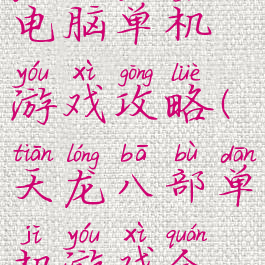 电脑单机
yóu xì gōng lüè
游戏攻略(
tiān lóng bā bù dān
天龙八部单
jī yóu xì quán
机游戏全